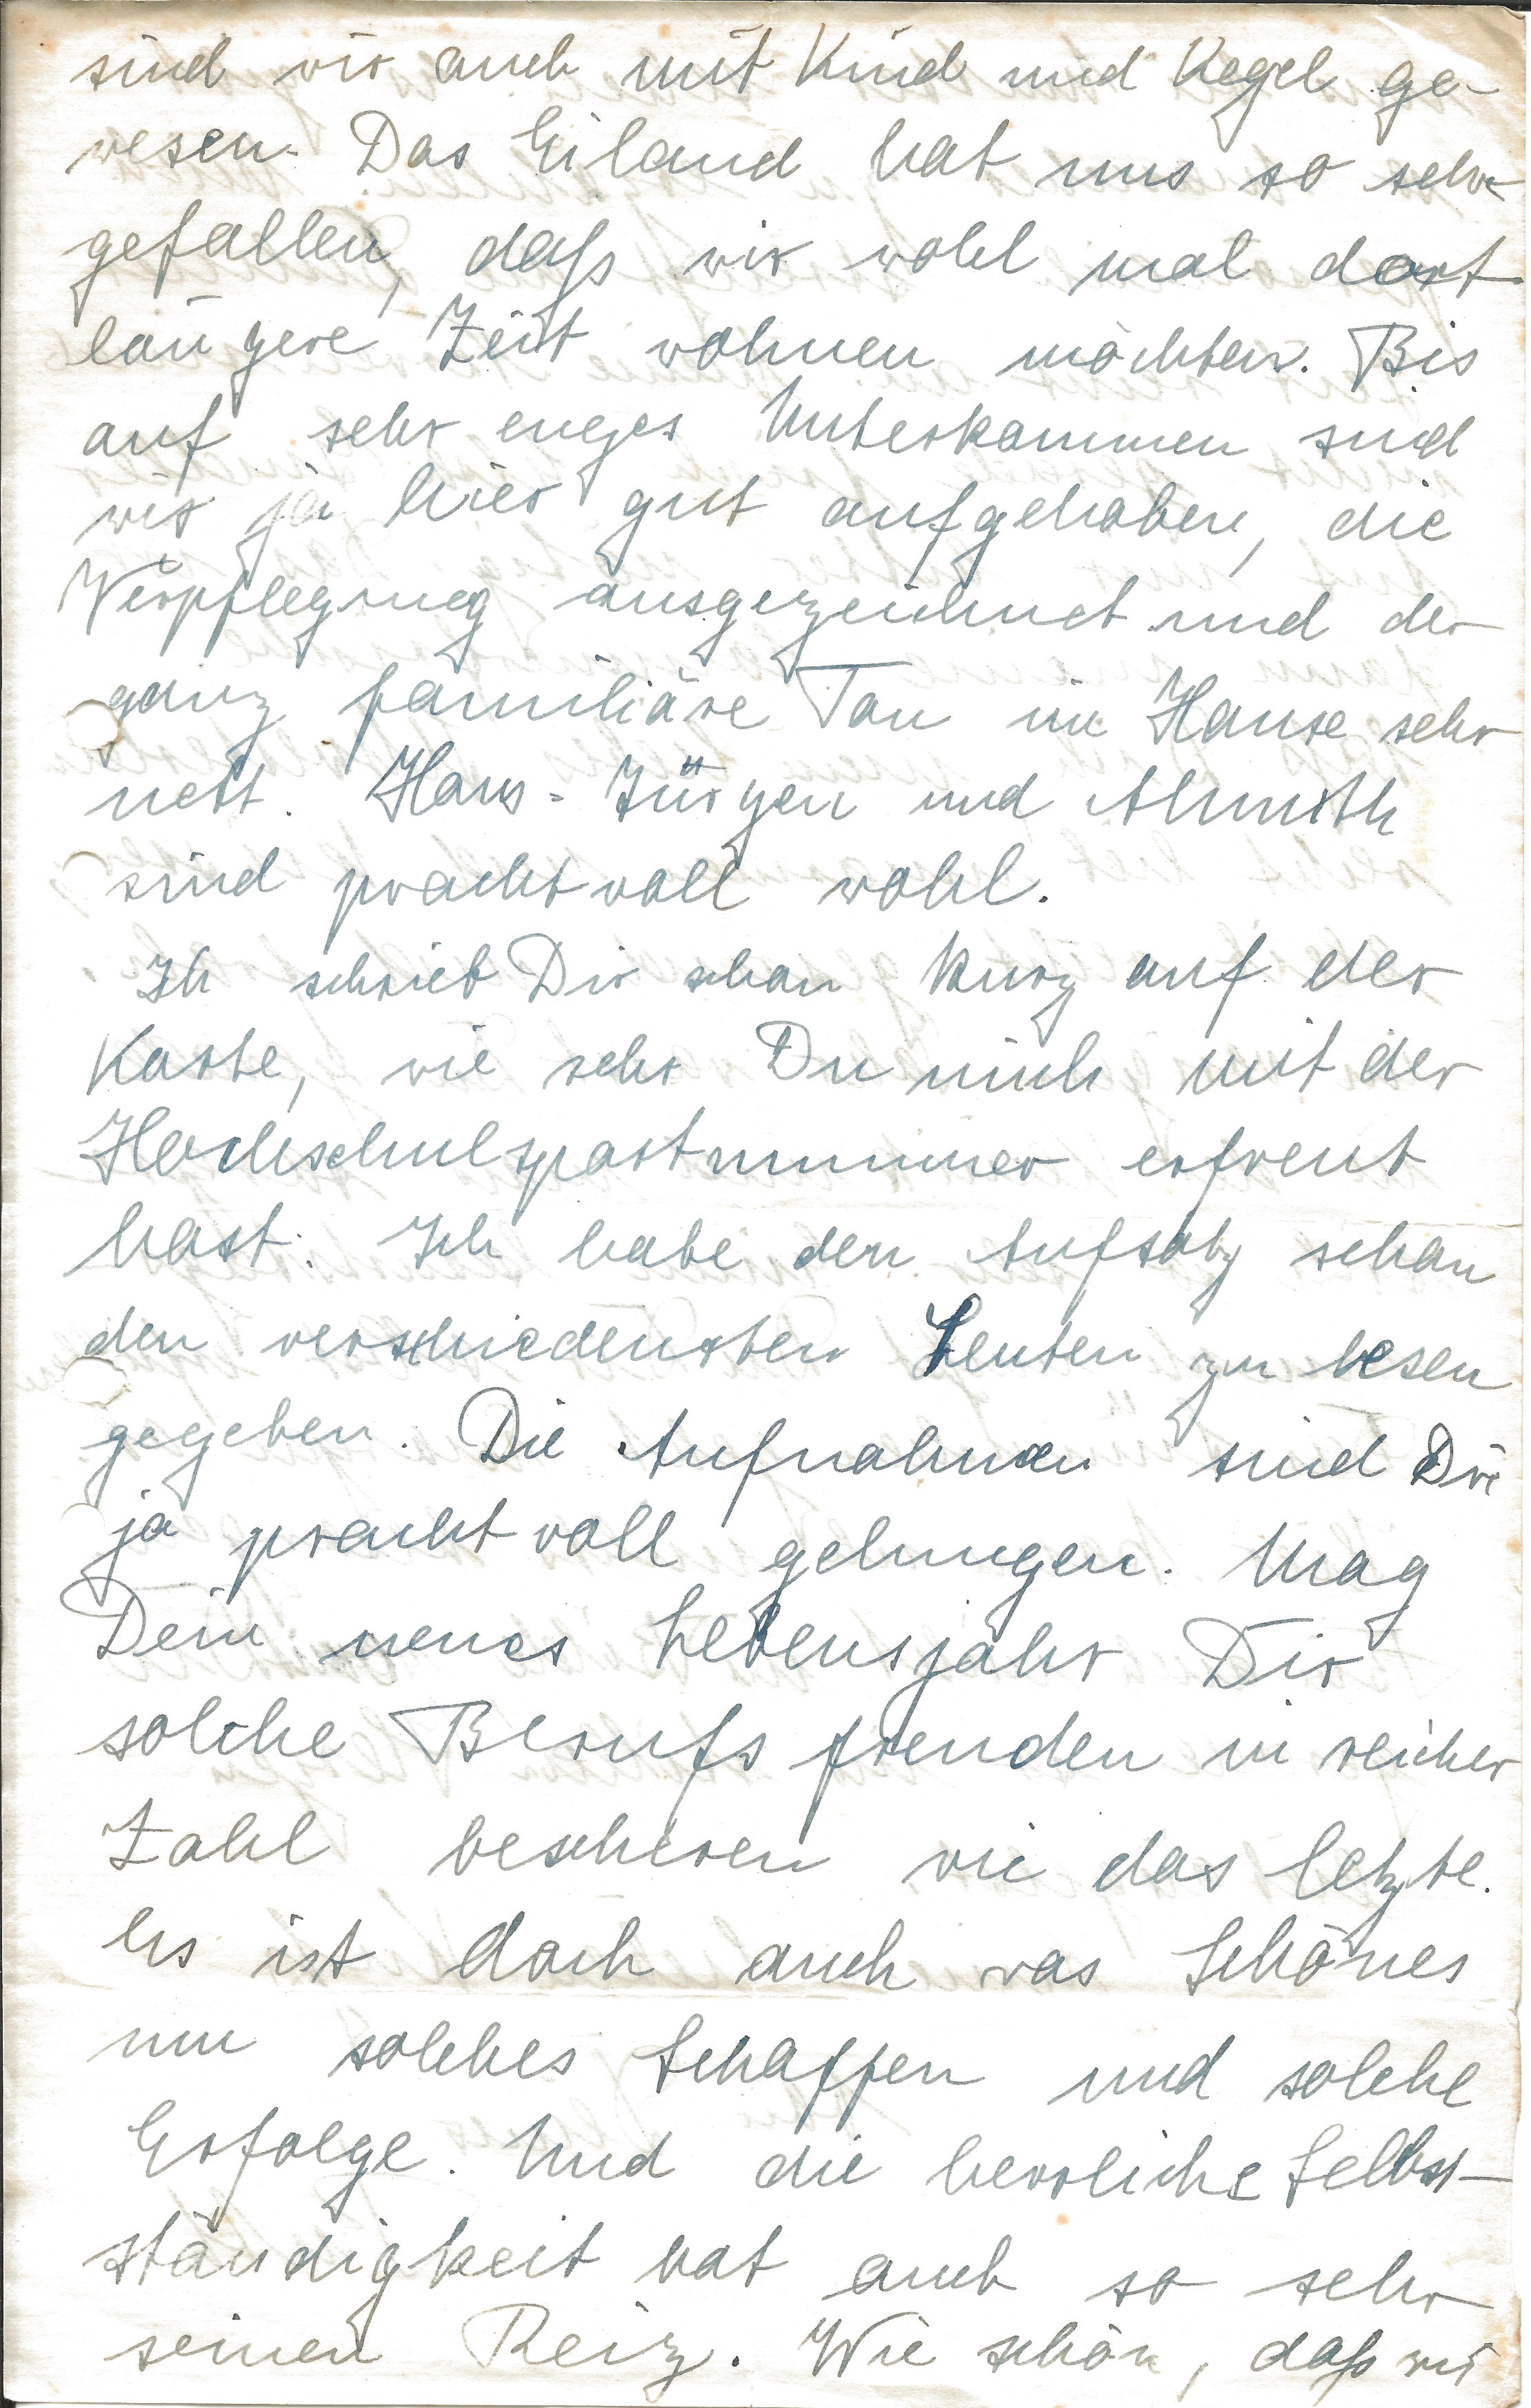 sind wir auch mit Kind und Kegel ge-
wesen. Das Eiland hat uns so sehr
gefallen, daß wir wohl mal dort
längere Zeit wohnen möchten. Bis
auf sehr enges Unterkommen sind
wir ja hier gut aufgehoben, die
Verpflegung ausgezeichnet und der
ganz familiäre Ton im Hause sehr
nett. Hans-Jürgen und Almuth
sind prachtvoll wohl.
Ich schrieb Dir schon kurz auf der
Karte, wie sehr Du mich mit der
Hochschulsportnummer erfreut
hast. Ich habe den Aufsatz schon
den verschiedensten Leuten zu lesen
gegeben. Die Aufnahmen sind Dir
ja prachtvoll gelungen. Mag
Dein neues Lebensjahr Dir
solche Berufsfreuden in reicher
Zahl bescheren wie das letzte.
Es ist doch auch was Schönes
um solches Schaffen und solche
Erfolge. Und die herrliche Selbst-
ständigkeit hat auch so sehr
seinen Reiz. Wie schön, daß wir